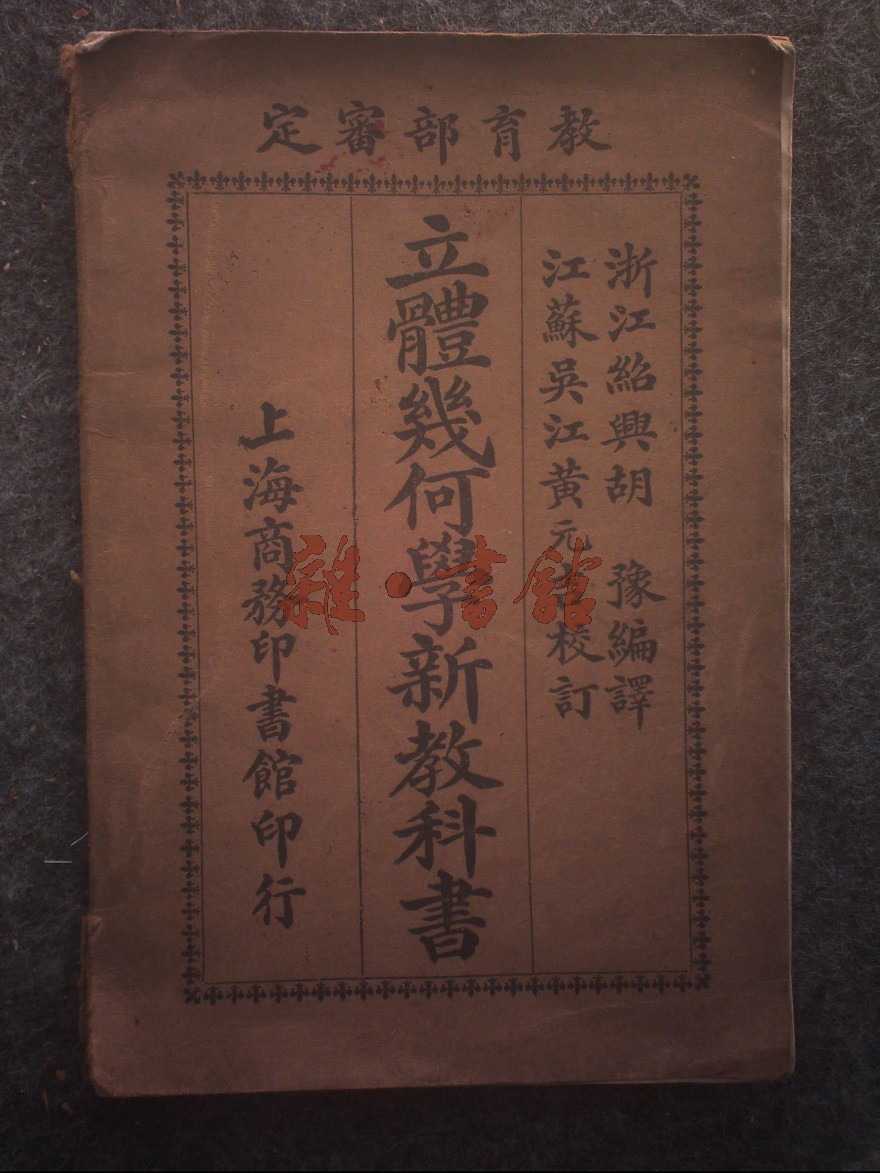 教育部審定
浙江紹興胡 豫編譯
江蘇吳江黃元吉校訂
立體幾何學新教科書
上海商務印書館印行
雜·書館